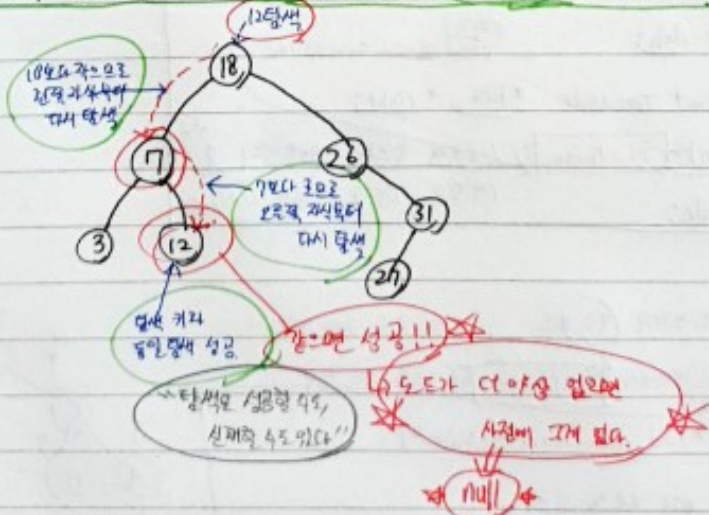 12탐색
18
18보다 작으므로
왼쪽 자식부터
다시 탐색
7
26
7보다 크므로
오른쪽 자식부터
다시 탐색
31
3
12
27
탐색 키와
동일 탐색 성공
같으면 성공!!
"탐색은 성공할 수도,
실패할 수도 있다"
노드가 더 이상 없으면
사전에 그게 없다.
null